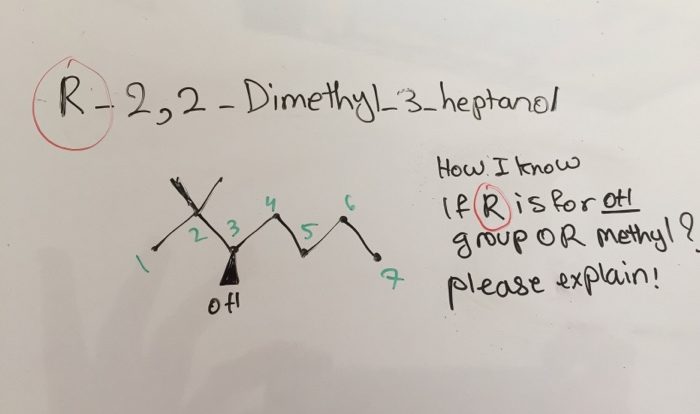 R-2,2-Dimethyl-3-heptanol
How I know
If R is for OH
group OR methyl?
please explain!
1 2 3 4 5 6 7
OH